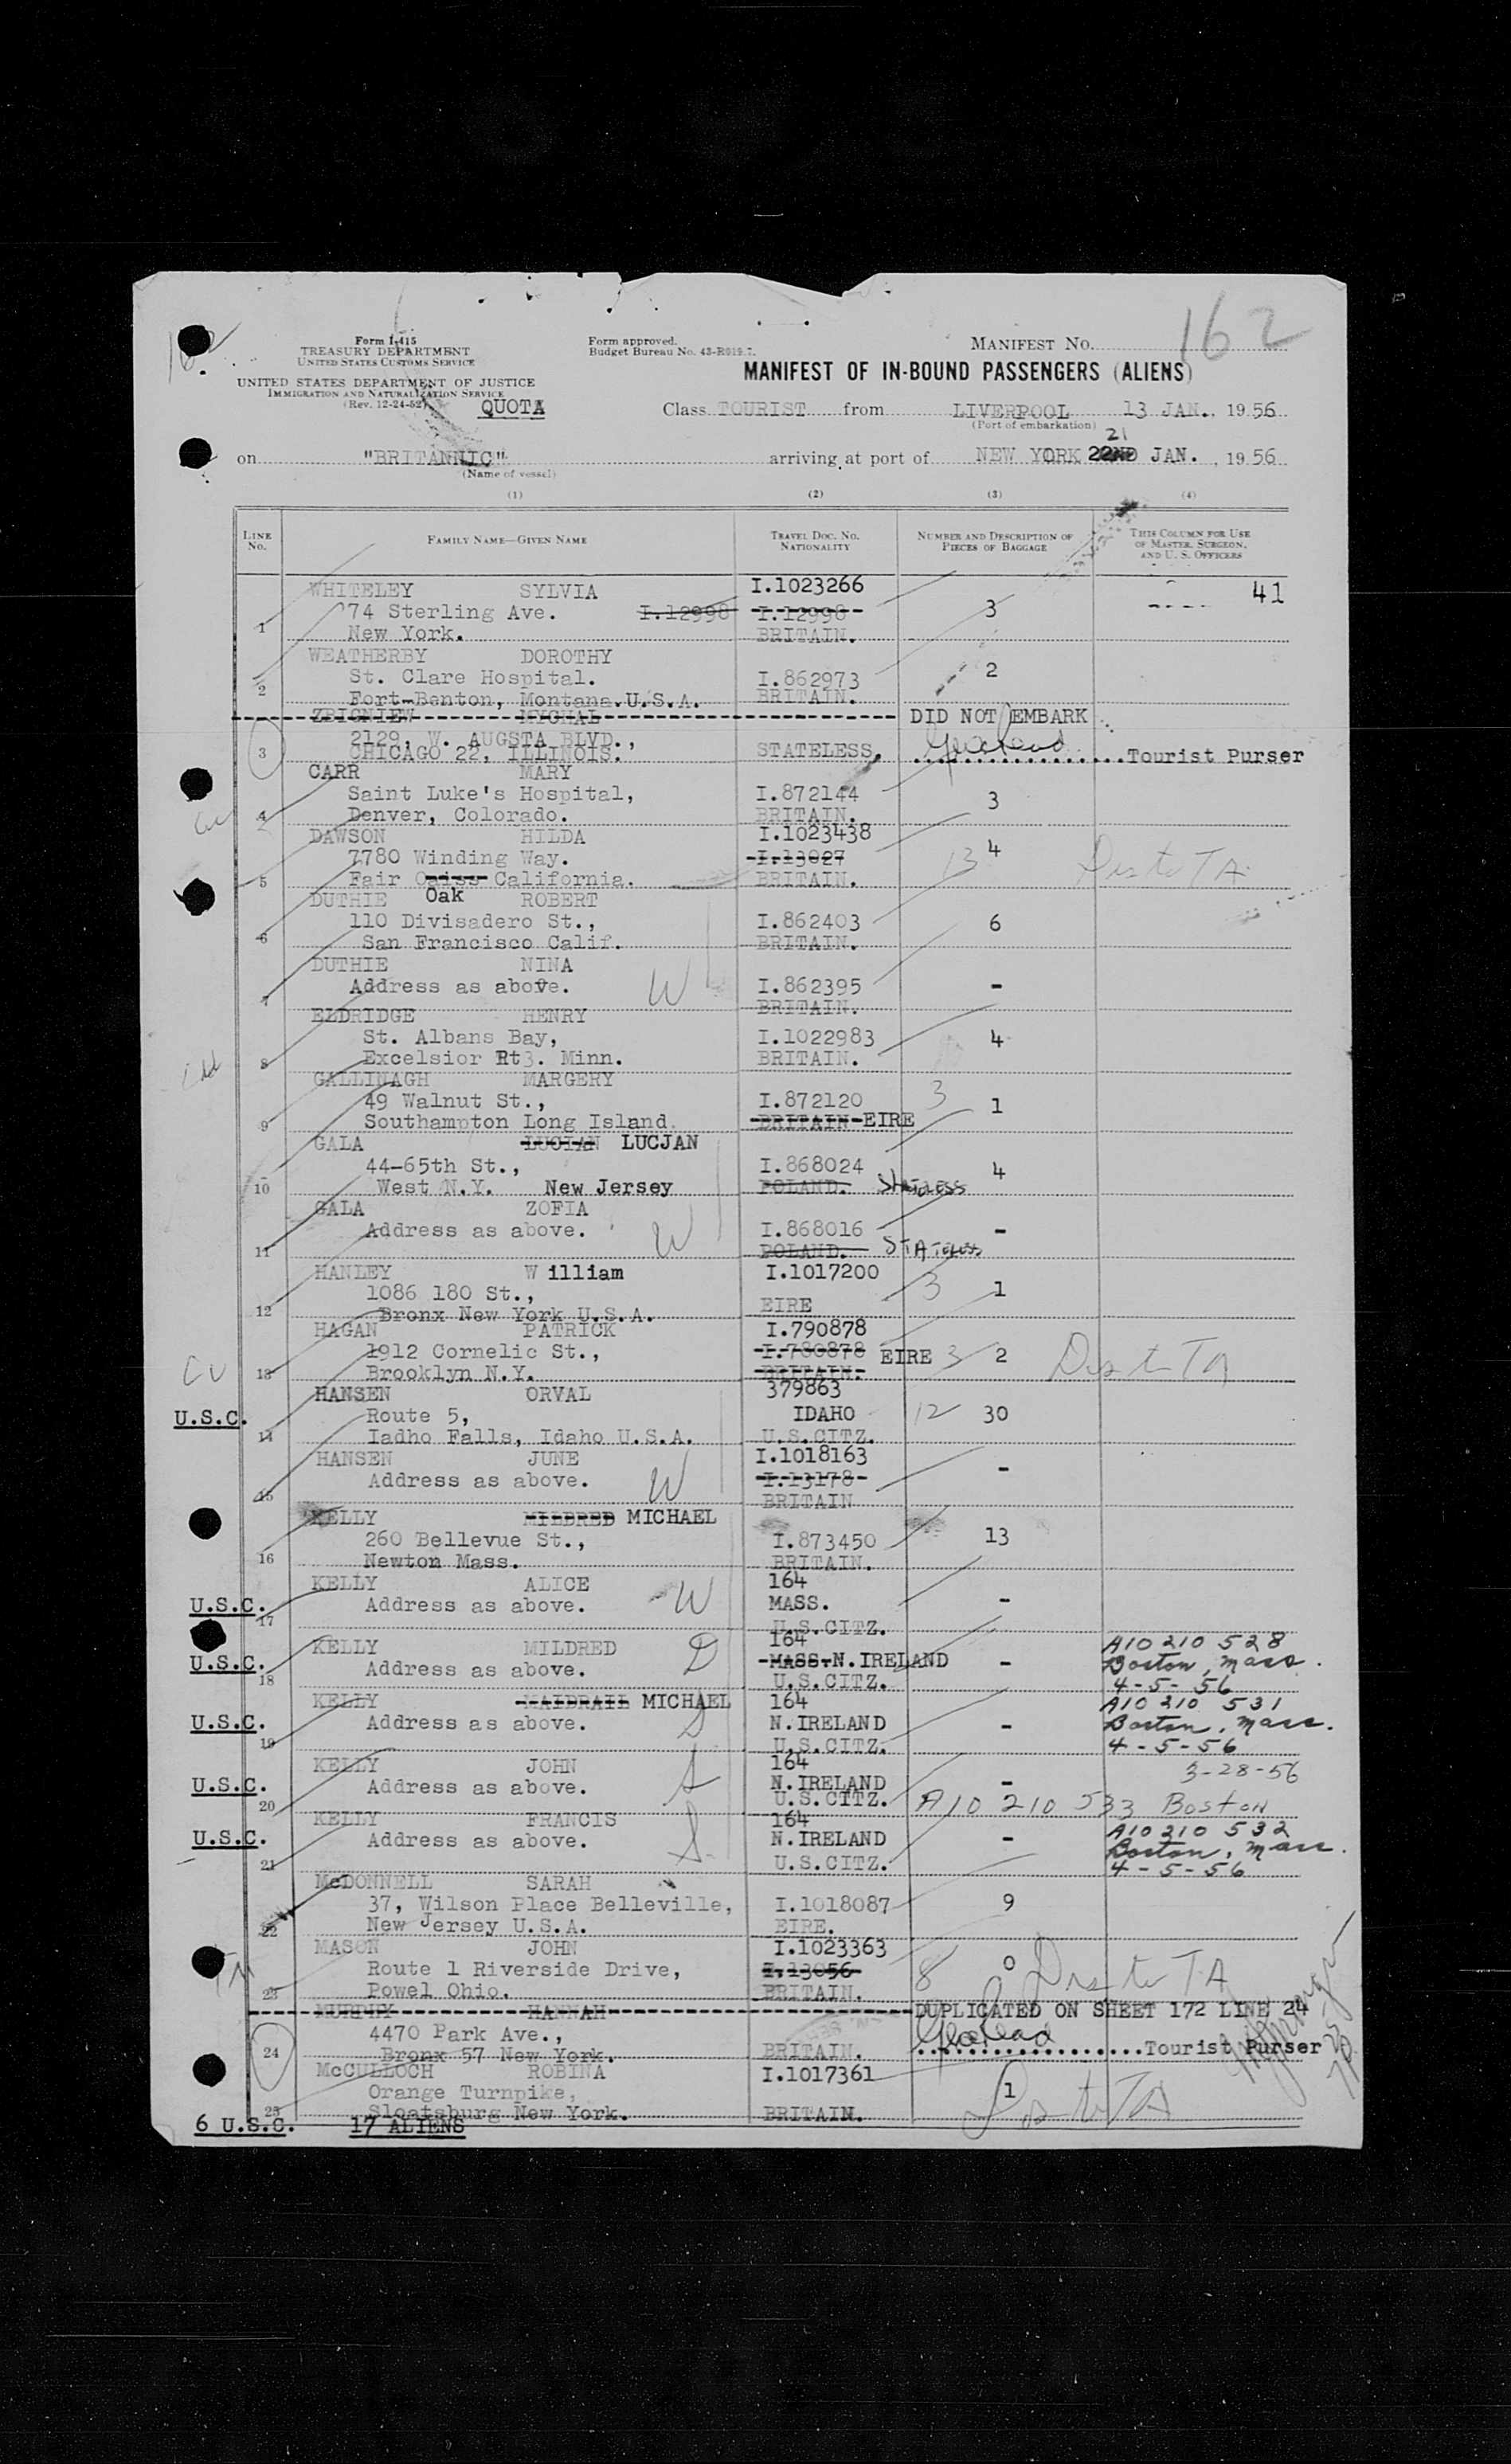 162
Form I-415
TREASURY DEPARTMENT
UNITED STATES CUSTOMS SERVICE
UNITED STATES DEPARTMENT OF JUSTICE
IMMIGRATION AND NATURALIZATION SERVICE
(Rev. 12-24-52)
QUOTA
Form approved.
Budget Bureau No. 43-R019.7.
MANIFEST NO. 162
MANIFEST OF IN-BOUND PASSENGERS (ALIENS)
Class TOURIST from LIVERPOOL 13 JAN., 1956
(Port of embarkation)
21
on "BRITANNIC" arriving at port of NEW YORK 22ND JAN., 1956
(Name of vessel)
(1) (2) (3) (4)
LINE No.
FAMILY NAME—GIVEN NAME
TRAVEL DOC. NO. NATIONALITY
NUMBER AND DESCRIPTION OF PIECES OF BAGGAGE
THIS COLUMN FOR USE OF MASTER, SURGEON, AND U. S. OFFICERS
WHITELEY SYLVIA I.1023266 41
74 Sterling Ave. I.12998 I.12998 3
1 New York. BRITAIN.
WEATHERBY DOROTHY
St. Clare Hospital. I.862973 2
2 Fort-Benton, Montana.U.S.A. BRITAIN.
ZBIGNIEW MYCHAL DID NOT EMBARK
2129, W. AUGSTA BLVD.,
3 CHICAGO 22, ILLINOIS. STATELESS. Tourist Purser
CARR MARY
Saint Luke's Hospital, I.872144 3
4 Denver, Colorado. BRITAIN.
DAWSON HILDA I.1023438
7780 Winding Way. I.13027 13 4 Dist TA
5 Fair Oaiss California. BRITAIN.
Oak
DUTHIE ROBERT
110 Divisadero St., I.862403 6
6 San Francisco Calif. BRITAIN.
DUTHIE NINA
7 Address as above. W I.862395 -
BRITAIN.
ELDRIDGE HENRY
St. Albans Bay, I.1022983 4
8 Excelsior Rt3. Minn. BRITAIN.
GALLINAGH MARGERY
49 Walnut St., I.872120 3 1
9 Southampton Long Island. BRITAIN EIRE
GALA LUCIAN LUCJAN
44-65th St., I.868024 4
10 West N.Y. New Jersey POLAND. STATELESS
GALA ZOFIA
Address as above. W I.868016 -
11 POLAND. STATELESS
HANLEY William I.1017200
1086 180 St., 3 1
12 Bronx New York U.S.A. EIRE
HAGAN PATRICK I.790878
1912 Cornelic St., I.780878 EIRE 3 2 Dist TA
13 Brooklyn N.Y. BRITAIN.
HANSEN ORVAL 379863
U.S.C. Route 5, IDAHO 12 30
14 Iadho Falls, Idaho U.S.A. U.S.CITZ.
HANSEN JUNE I.1018163
Address as above. W I.13178 -
15 BRITAIN
KELLY MILDRED MICHAEL
260 Bellevue St., I.873450 13
16 Newton Mass. BRITAIN.
KELLY ALICE 164
U.S.C. Address as above. W MASS. -
17 U.S.CITZ.
KELLY MILDRED D 164 A10 210 528
U.S.C. Address as above. MASS. N.IRELAND - Boston, Mass.
18 U.S.CITZ. 4-5-56
KELLY MAIDRAIL MICHAEL 164 A10 210 531
U.S.C. Address as above. S N.IRELAND - Boston, Mass.
19 U.S.CITZ. 4-5-56
KELLY JOHN 164 3-28-56
U.S.C. Address as above. S N.IRELAND -
20 U.S.CITZ. A10 210 533 Boston
KELLY FRANCIS 164 A10 210 532
U.S.C. Address as above. S N.IRELAND - Boston, Mass.
21 U.S.CITZ. 4-5-56
McDONNELL SARAH
37, Wilson Place Belleville, I.1018087 9
22 New Jersey U.S.A. EIRE.
MASON JOHN I.1023363
Route 1 Riverside Drive, I.13056 8 0 Dist TA
23 Powel Ohio. BRITAIN.
MURPHY HANNAH DUPLICATED ON SHEET 172 LINE 24
4470 Park Ave.,
24 Bronx 57 New York. BRITAIN. Tourist Purser
McCULLOCH ROBINA I.1017361
Orange Turnpike, 1 Dist TA
25 Sloatsburg New York. BRITAIN.
6 U.S.C. 17 ALIENS